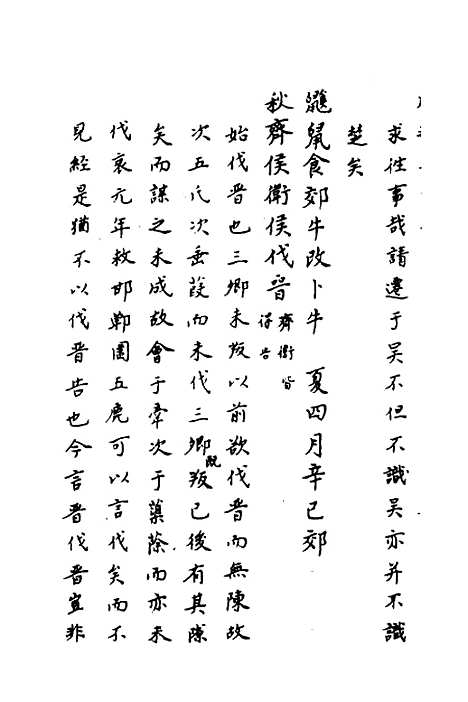 求往事哉請遷于吴不但不識吴亦并不識
楚矣
鼷鼠食郊牛改卜牛 夏四月辛巳郊
秋齊侯衛侯伐晉齊衛皆
得告
始伐晉也三卿未叛以前欲伐晉而無隙故
次五氏次垂葭而未伐三卿既叛已後有其隙
矣而謀之未成故會于牽次于蕖蒢而亦未
伐哀元年救邯鄲圍五鹿可以言伐矣而不
見經是猶不以伐晉告也今言晉伐晉豈非